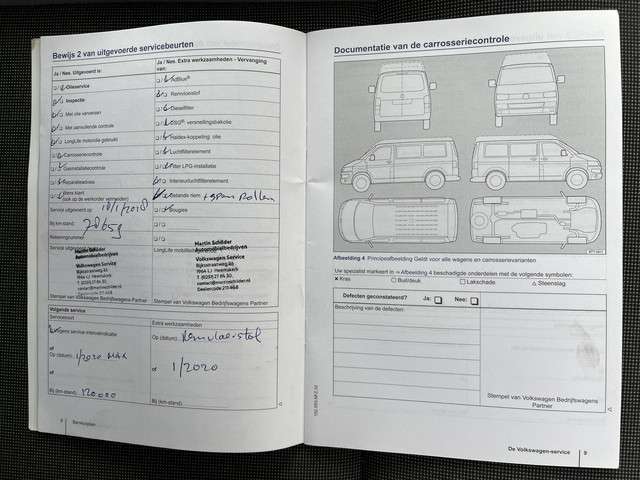 Bewijs 2 van uitgevoerde servicebeurten
Ja / Nee. Uitgevoerd is:
Olieservice
Inspectie
Met olie verversen
Met aanvullende controle
LongLife motorolie gebruikt
Carrosseriecontrole
Reparatieadvies
Wens klant
(ook op de werkorder vermelden)
Service uitgevoerd op: 18/1/2018
Bij km-stand: 78659
Service uitgevoerd door:
Martin Schilder
Automobielbedrijven
Volkswagen Service
Stempel van Volkswagen Bedrijfswagens Partner
Ja / Nee. Extra werkzaamheden - Vervanging
van:
AdBlue®
Remvloeistof
Dieselfilter
DSG® versnellingsbakolie
Haldex-koppeling: olie
Luchtfilterelement
Filter LPG-installatie
Interieurluchtfilterelement
Getande riem + span Rollen
Bougies
Martin Schilder
Automobielbedrijven
Volkswagen Service
Stempel van Volkswagen Bedrijfswagens Partner
Volgende service
Servicesoort
Volgens service-intervalindicatie
of
Op (datum): 1/2020 MAX
of
Bij (km-stand): 120000
Extra werkzaamheden
Op (datum): Remvloeistof
of 1/2020
Bij (km-stand):
8 Serviceplan
Documentatie van de carrosseriecontrole
Afbeelding 4 Principeafbeelding Geldt voor alle wagens en carrosserievarianten
Uw specialist markeert in ⇒ Afbeelding 4 beschadigde onderdelen met de volgende symbolen:
× Kras ☐ Buil/deuk ☐ Lakschade △ Steenslag
Defecten geconstateerd? Ja: ☐ Nee: ☐
Beschrijving van de defecten:
Stempel van Volkswagen Bedrijfswagens
Partner
De Volkswagen-service 9